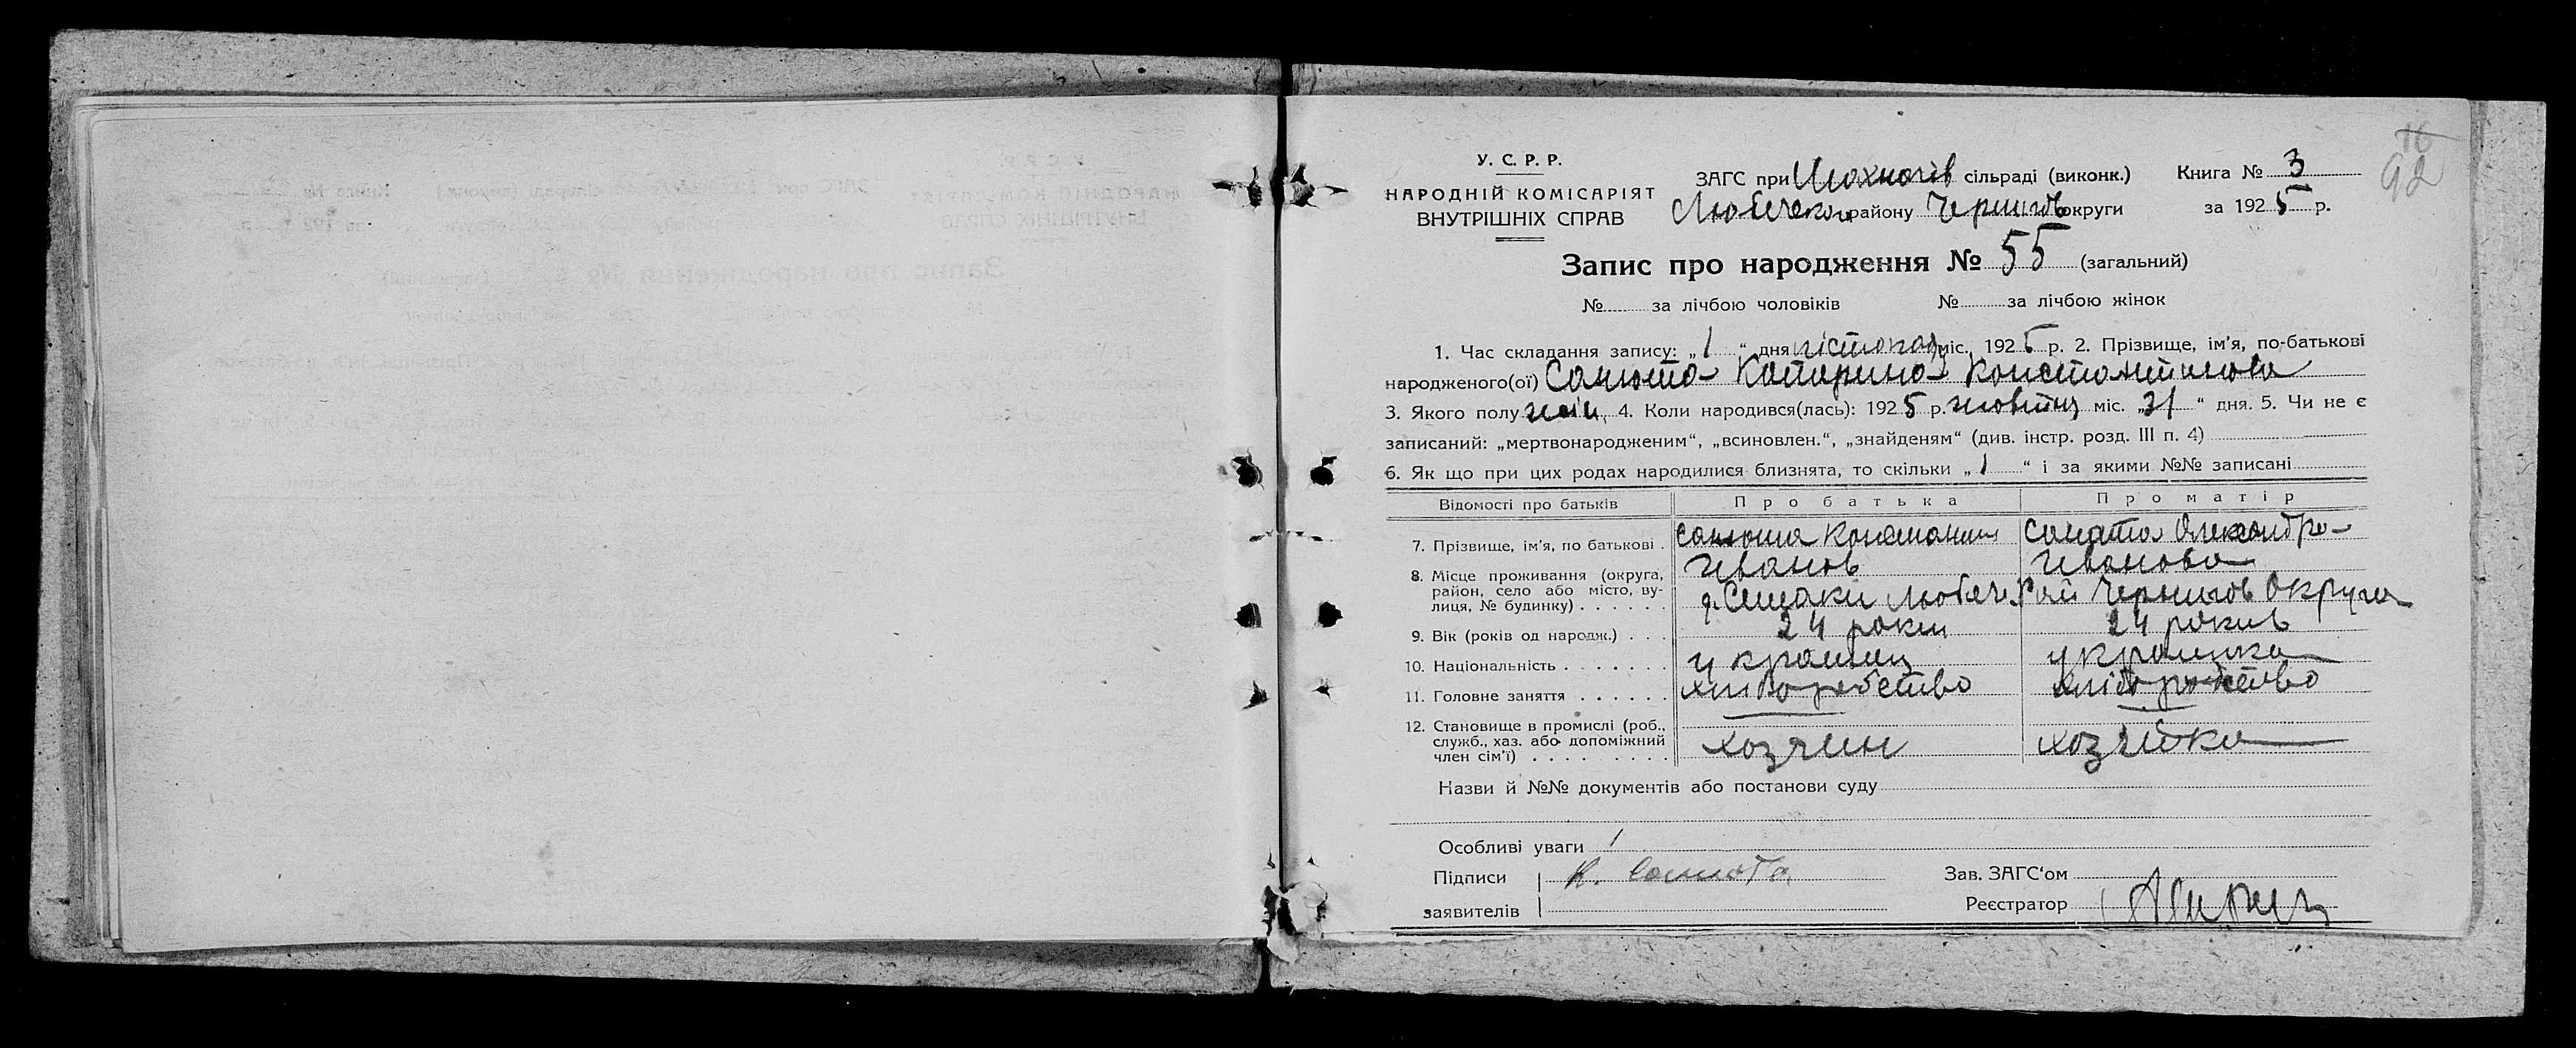 16
92
У. С. Р. Р.
НАРОДНІЙ КОМІСАРІЯТ
ВНУТРІШНІХ СПРАВ
ЗАГС при сільраді (виконк.) Книга № 3
району Чернигов округи за 1925 р.
Запис про народження № 55 (загальний)
№ за лічбою чоловіків № за лічбою жінок
1. Час складання запису: „1“ дня лістопад міс. 1925 р. 2. Прізвище, ім'я, по-батькові
народженого(ої) Санюта Катерина Константинова
3. Якого полу жін 4. Коли народився(лась): 1925 р. міс. „31“ дня. 5. Чи не є
записаний: „мертвонародженим“, „всиновлен.“, „знайденям“ (див. інстр. розд. III п. 4)
6. Як що при цих родах народилися близнята, то скільки „1“ і за якими №№ записані
Відомості про батьків Про батька Про матір
7. Прізвище, ім'я, по батькові . Санюта Константин Олександра
Иванов Иванова
8. Місце проживання (округа,
район, село або місто, ву-
лиця, № будинку) . . . . . . Любеч. Рай Чернигов Округи
9. Вік (років од народж.) . . . 24 роки 24 роков
10. Національність . . . . . . . украинка
11. Головне заняття . . . . . .
12. Становище в промислі (роб.,
служб., хаз. або допоміжний
член сім'ї) . . . . . . . . . хозяин хозяйка
Назви й №№ документів або постанови суду
Особливі уваги
Підписи К. Санюта Зав. ЗАГС'ом
заявителів Реєстратор